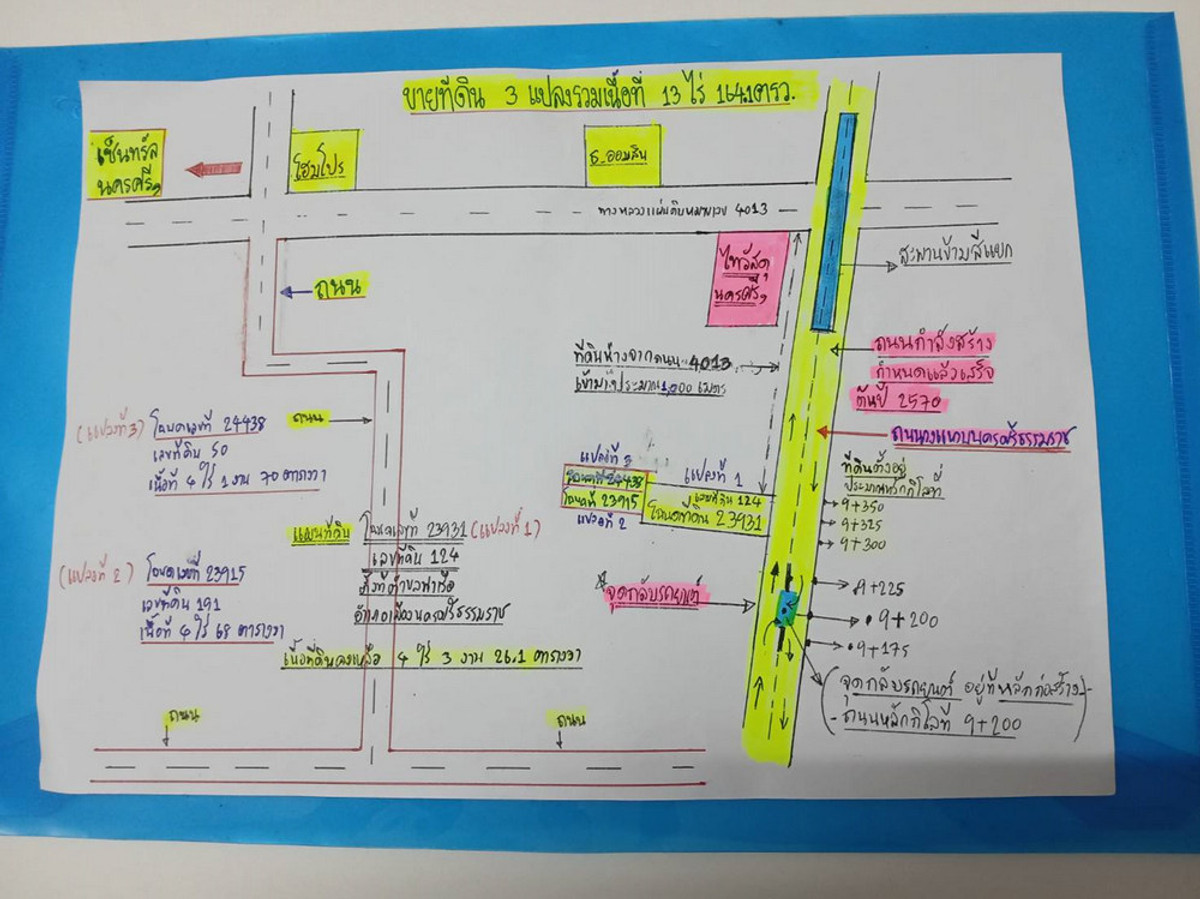 ขายที่ดิน 3 แปลงรวมเนื้อที่ 13 ไร่ 164.1 ตรว.
เซ็นทรัล
นครศรีฯ
โฮมโปร
ธ.ออมสิน
ทางหลวงแผ่นดินหมายเลข 4013
สะพานข้ามสี่แยก
ไทวัสดุ
นครศรีฯ
ถนน
ที่ดินห่างจากถนน 4013
เข้ามาประมาณ 1,000 เมตร
ถนนกำลังสร้าง
กำหนดแล้วเสร็จ
ต้นปี 2570
ถนนวงแหวนนครศรีธรรมราช
(แปลงที่ 3) โฉนดเลขที่ 24438
เลขที่ดิน 50
เนื้อที่ 4 ไร่ 1 งาน 70 ตารางวา
ถนน
แปลงที่ 3
โฉนดที่ 24438
โฉนดที่ 23915
แปลงที่ 2
แปลงที่ 1
เลขที่ดิน 124
โฉนดที่ดิน 23931
ที่ดินตั้งอยู่
ประมาณหลักกิโลที่
9+350
9+325
9+300
แผนที่ดิน โฉนดเลขที่ 23931 (แปลงที่ 1)
เลขที่ดิน 124
ตั้งที่ตำบลท่าเรือ
อำเภอเมืองนครศรีธรรมราช
(แปลงที่ 2) โฉนดเลขที่ 23915
เลขที่ดิน 191
เนื้อที่ 4 ไร่ 68 ตารางวา
เนื้อที่ดินคงเหลือ 4 ไร่ 3 งาน 26.1 ตารางวา
จุดกลับรถยนต์
9+225
9+200
9+175
(จุดกลับรถยนต์ อยู่ที่หลักก่อสร้าง-
- ถนนหลักกิโลที่ 9+200)
ถนน
ถนน